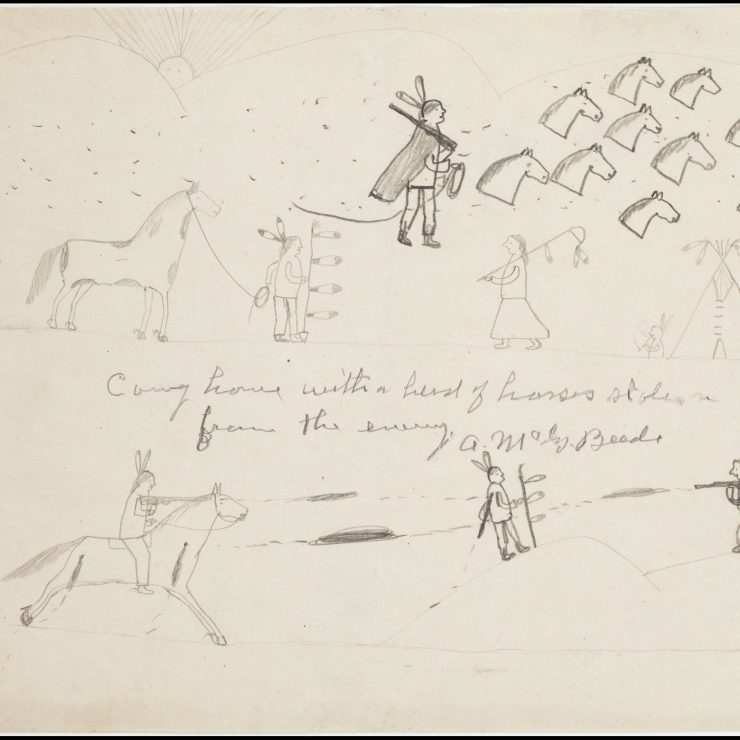 Comg home with a herd of horses stolen
from the enemy. A. McG. Beede